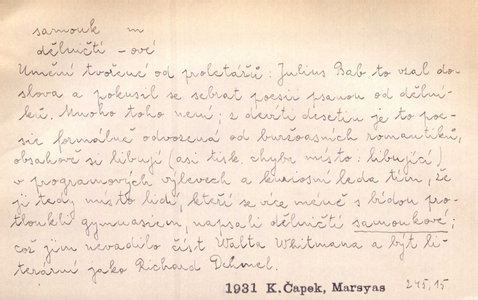 samouk m
dělničtí -ové
Umění tvořené od proletářů: Julius Bab to vzal do-
slova a pokusil se sebrat poesii psanou od dělní-
ků. Mnoho toho není; z devíti desetin je to poe-
sie formálně odvozená od buržoasních romantiků,
obsahově si libují (asi tisk. chyba místo: libující)
v programových výlevech a kuriosní leda tím, že
ji tedy místo lidí, kteří se více méně s bídou pro-
tloukli gymnasiem, napsali dělničtí samoukové;
což jim nevadilo číst Walta Whitmana a být li-
terární jako Richard Dehmel.
1931 K.Čapek, Marsyas 245,15